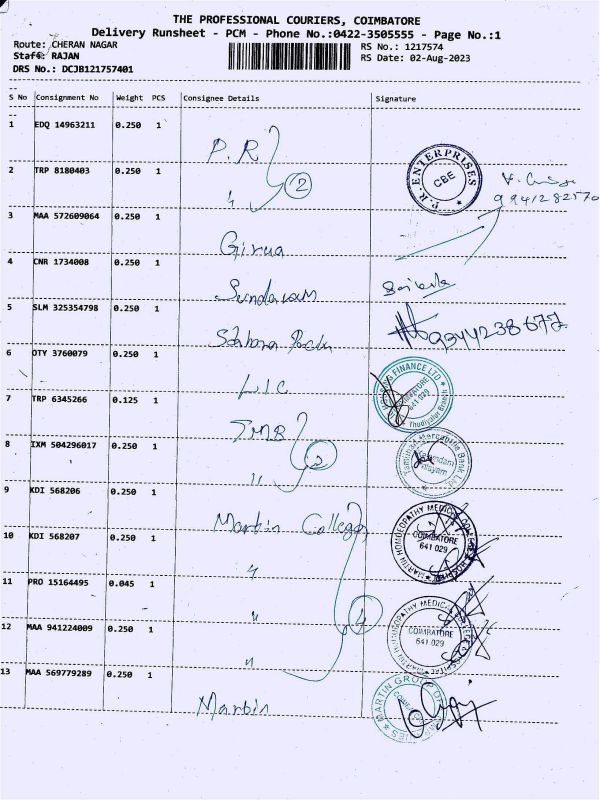 THE PROFESSIONAL COURIERS, COIMBATORE
Delivery Runsheet - PCM - Phone No.:0422-3505555 - Page No.:1
Route: CHERAN NAGAR
RS No.: 1217574
Staff: RAJAN
RS Date: 02-Aug-2023
DRS No.: DCJB121757401
S No Consignment No Weight PCS Consignee Details Signature
1 EDQ 14963211 0.250 1 P.R
2 TRP 8180403 0.250 1 " 2
P.R. ENTERPRISES CBE
3 MAA 572609064 0.250 1 Girua
4 CNR 1734008 0.250 1 Sundaram
5 SLM 325354798 0.250 1
6 OTY 3760079 0.250 1 LIC
FINANCE LTD COIMBATORE 641 029 Thudiyalur Branch
7 TRP 6345266 0.125 1 TMB
8 IXM 504296017 0.250 1 " 2
Tamilnad Mercantile Bank Ltd
9 KDI 568206 0.250 1 Martin College
MARTIN HOMOEOPATHY MEDICAL COLLEGE COIMBATORE 641 029
10 KDI 568207 0.250 1 "
11 PRO 15164495 0.045 1 "
12 MAA 941224009 0.250 1 " 4
HOMOEOPATHY MEDICAL COLLEGE COIMBATORE 641 029
13 MAA 569779289 0.250 1 Martin
MARTIN GROUP OF COMPANIES